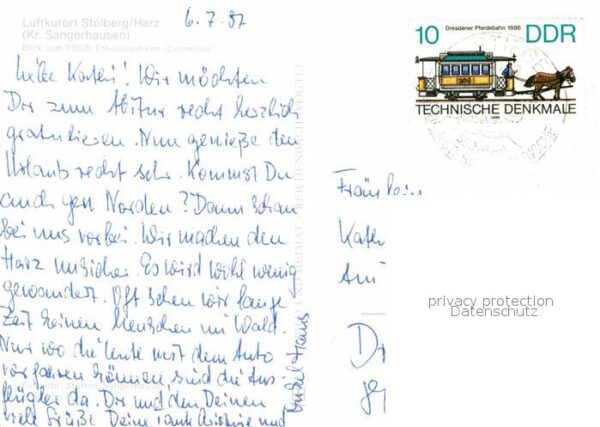 6.7.87
Luftkurort Stolberg/Harz
(Kr. Sangerhausen)
Blick zum FDGB-Erholungsheim „Comenius"
Liebe Kathi! Wir möchten
Dir zum Abitur recht herzlich
gratulieren. Nun genieße den
Urlaub recht sehr. Kommst Du
auch gen Norden? Dann schau
bei uns vorbei. Wir machen den
Harz unsicher. Es wird wohl wenig
gewandert. Oft sehen wir lange
Zeit keinen Menschen im Wald.
Nur wo die Leute mit dem Auto
vorfahren können, sind die Aus-
flügler da. Dir und den Deinen
viele Grüße Deine Tante Christine und
Onkel Hans
Dresdener Pferdebahn 1886
10 DDR
TECHNISCHE DENKMALE
Fräulein
Kath
Dr
privacy protection
Datenschutz